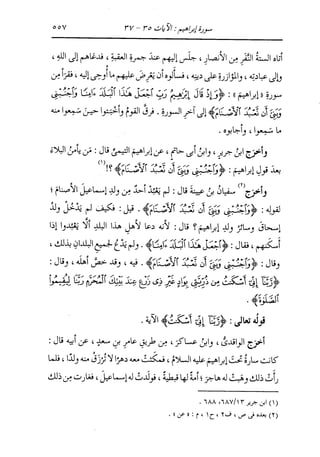 سورة إبراهيم : الآيات ٣٥ - ٣٧ ٥٥٧
أتاه الستةُ النَّفَرِ من الأنصارِ ، جلَس إليهم عندَ جمرةِ العقبةِ ، فدعاهم إلى اللهِ ،
وإلى عبادتِه ، والمؤازرةِ على دينِه ، فسألوه أن يَعْرِضَ عليهم ما أُوحِى إليه ، فقرَأ من
سورةِ « إبراهيم » : ﴿وَإِذْ قَالَ إِبْرَٰهِيمُ رَبِّ ٱجْعَلْ هَٰذَا ٱلْبَلَدَ ءَامِنًا وَٱجْنُبْنِى
وَبَنِىَّ أَن نَّعْبُدَ ٱلْأَصْنَامَ﴾ إلى آخرِ السورةِ . فرقَّ القومُ وأَخبَتوا حينَ سمِعوا منه
ما سَمِعوا ، وأجابوه .
وأخرَج ابنُ جريرٍ ، وابنُ أبى حاتمٍ ، عن إبراهيمَ التيمىِّ قال : مَن يأمنُ البلاءَ
بعدَ قولِ إبراهيمَ : ﴿وَٱجْنُبْنِى وَبَنِىَّ أَن نَّعْبُدَ ٱلْأَصْنَامَ﴾ ؟!(١)
وأخرَج(٢) سفيانُ بنُ عيينةَ قال : لم يَعْبُدْ أحدٌ مِن ولدِ إسماعيلَ الأصنامَ ؛
لقولِه : ﴿وَٱجْنُبْنِى وَبَنِىَّ أَن نَّعْبُدَ ٱلْأَصْنَامَ﴾ . قيل : فكيف لم يَدخُلْ ولدُ
إسحاقَ وسائرُ ولدِ إبراهيمَ ؟ قال : لأنه دعا لأهلِ هذا البلدِ ألَّا يعبُدوا إذا
أسكنهم ، فقال : ﴿ٱجْعَلْ هَٰذَا ٱلْبَلَدَ ءَامِنًا﴾ . ولم يَدعُ لجميعِ البلدانِ بذلك ،
وقال : ﴿وَٱجْنُبْنِى وَبَنِىَّ أَن نَّعْبُدَ ٱلْأَصْنَامَ﴾ . فيه ، وقد خصَّ أهلَه ، وقال :
﴿رَّبَّنَآ إِنِّىٓ أَسْكَنتُ مِن ذُرِّيَّتِى بِوَادٍ غَيْرِ ذِى زَرْعٍ عِندَ بَيْتِكَ ٱلْمُحَرَّمِ رَبَّنَا لِيُقِيمُوا۟
ٱلصَّلَوٰةَ﴾ .
قولُه تعالى : ﴿رَّبَّنَآ إِنِّىٓ أَسْكَنتُ﴾ الآية .
أخرَج الواقدىُّ ، وابنُ عساكرَ ، من طريقِ عامرِ بنِ سعدٍ ، عن أبيه قال :
كانت سارةُ تحتَ إبراهيمَ عليه السلامُ ، فمكَثت معه دهرًا لا تُرزَقُ منه ولدًا ، فلما
رأَتْ ذلك وهَبتْ له هاجرَ ؛ أمةً لها قبطيةً ، فولَدتْ له إسماعيلَ ، فغارت مِن ذلك
(١) ابن جرير ١٣/ ٦٨٧، ٦٨٨ .
(٢) بعده فى ص ، ف٢ ، ح١ ، م : « عن » .